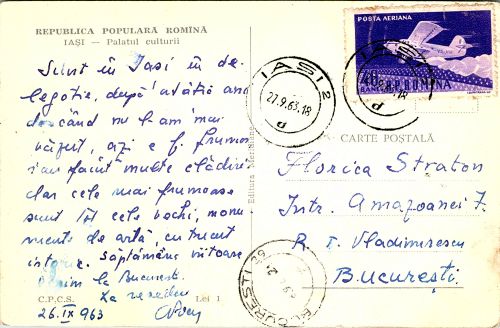 REPUBLICA POPULARĂ ROMÎNĂ
IAȘI — Palatul culturii
Sunt în Iași în de-
legație, după atâția ani
de când nu l-am mai
văzut, azi e f. frumos
s-au făcut multe clădiri
dar cele mai frumoase
sunt tot cele vechi, monu-
mente de artă, cu trecut
istoric. Săptămâna viitoare
venim la București.
La revedere
26.IX 963
C.P.C.S.
Lei 1
Editura Meridiane
POSTA AERIANA
40 BANI
R.P.ROMINA
IAȘI 2
27.9.63.18
d
18
d
CARTE POSTALĂ
Florica Straton
Intr. Amazoanei 7.
R. T. Vladimirescu
București
BUCUREȘTI 39